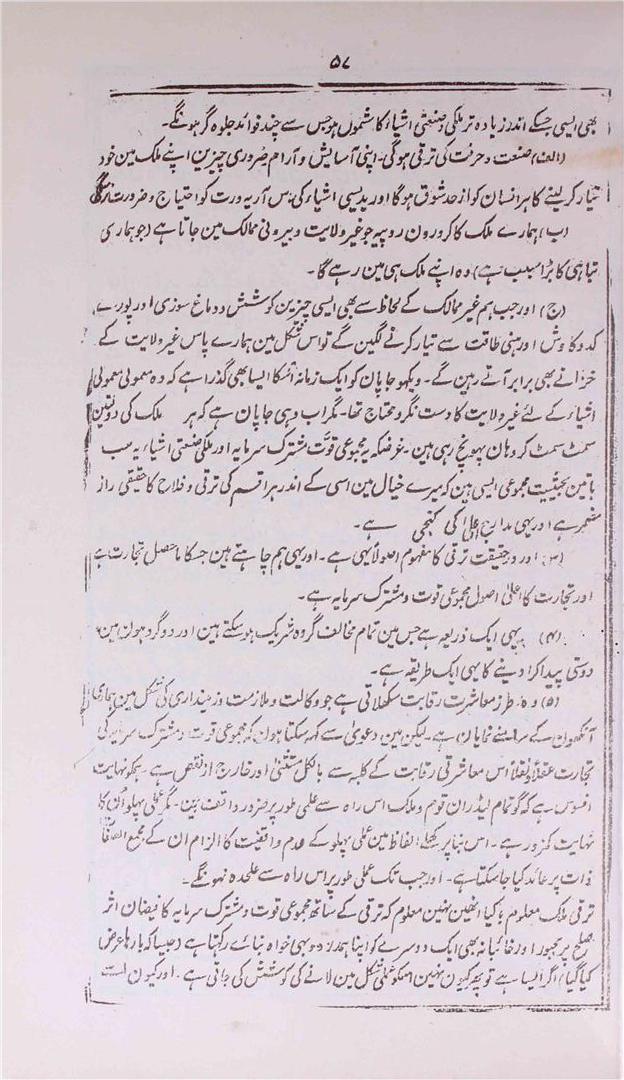 ۵۷
بھی ایسی جسکے اندر زیادہ تر ملکی و صنعتی اشیاء کا شمول ہو جس سے چند فوائد جلوہ گر ہونگے۔
(الف) صنعت و حرفت کی ترقی ہوگی۔ اپنی آسایش و آرام ضروری چیزین اپنے ملک مین خود
تیار کر لینے کا ہر انسان کو از حد شوق ہوگا اور بدیسی اشیاء کی پس آریہ ورت کو احتیاج و ضرورت نرہیگی
(ب) ہمارے ملک کا کرورون روپیہ جو غیر ولایت و بیرونی ممالک مین جاتا ہے (جو ہماری
تباہی کا بڑا سبب ہے) وہ اپنے ملک ہی مین رہے گا۔
(ج) اور جب ہم غیر ممالک کے لحاظ سے بھی ایسی چیزین کوشش و دماغ سوزی اور پورے
کد و کاوش اور ہنی طاقت سے تیار کرنے لگین گے تو اس شکل مین ہمارے پاس غیر ولایت کے
خزانے بھی برابر آتے رہین گے۔ دیکھو جاپان کو ایک زمانہ اُسکا ایسا بھی گذرا ہے کہ وہ معمولی معمولی
اشیاء کے لئے غیر ولایت کا دست نگر و محتاج تھا۔ مگر اب وہی جاپان ہے کہ ہر ملک کی دولتین
سمٹ سمٹ کر وہان پہونچ رہی ہین۔ غرضکہ یہ مجموعی قوت مشترک سرمایہ اور ملکی صنعتی اشیاء یہ سب
باتین بحیثیت مجموعی ایسی ہین کہ میرے خیال مین اسی کے اندر ہر قسم کی ترقی و فلاح کا حقیقی راز
مضمر ہے اور یہی مدارج اعلیٰ کی کنجی ہے۔
(۳) اور درحقیقت ترقی کا مفہوم اصولاً یہی ہے۔ اور یہی ہم چاہتے ہین جسکا ماحصل تجارت ہے
اور تجارت کا اعلیٰ اصول مجموعی قوت و مشترک سرمایہ ہے۔
(۴) یہی ایک ذریعہ ہے جس مین تمام مخالف گروہ شریک ہو سکتے ہین اور دو گروہون مین
دوستی پیدا کرا دینے کا یہی ایک طریقہ ہے۔
(۵) وہ طرز معاشرت رقابت سکھلاتی ہے جو وکالت و ملازمت و زمینداری کی شکل مین ہماری
آنکھون کے سامنے نمایان ہے۔ لیکن مین دعویٰ سے کہہ سکتا ہون کہ مجموعی قوت و مشترک سرمایہ کی
تجارت عقلاً و نقلاً اس معاشرتی رقابت کے کلیہ سے بالکل مستثنیٰ اور خارج از نقص ہے۔ ہمکو نہایت
افسوس ہے کہ گو تمام لیڈران قوم و ملک اس راہ سے علمی طور پر ضرور واقف ہین۔ مگر عملی پہلو اُن کا
نہایت کمزور ہے۔ اس بنا پر کھلے الفاظ مین عملی پہلو کے عدم واقفیت کا الزام ان کے مجمع الصفات
ذات پر عائد کیا جا سکتا ہے۔ اور جب تک عملی طور پر اس راہ سے علٰحدہ نہونگے۔
ترقی ملک معلوم! کیا انھین نہین معلوم کہ ترقی کے ساتھ مجموعی قوت و مشترک سرمایہ کا فیضان اثر
صلح پر مجبور اور غائبانہ بھی ایک دوسرے کو اپنا ہمدرد و بہی خواہ بنائے رکھتا ہے (جیسا کہ بارہا عرض
کیا گیا) اگر ایسا ہے تو پھر کیون نہین اسکو عملی شکل مین لانے کی کوشش کی جاتی ہے۔ اور کیون